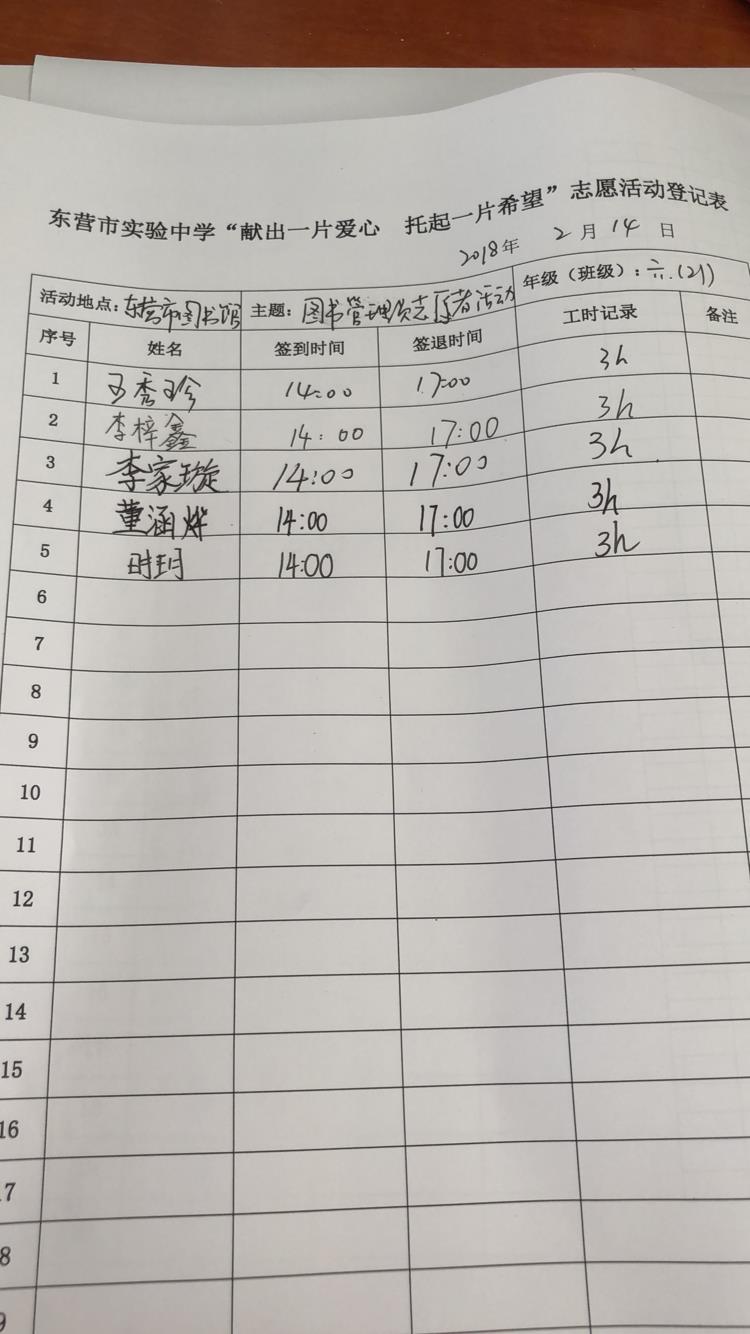 东营市实验中学“献出一片爱心 托起一片希望”志愿活动登记表
2018年 2月 14日
活动地点：东营市图书馆 主题：图书管理员志愿者活动 年级（班级）：六.(21)
序号 姓名 签到时间 签退时间 工时记录 备注
1 王秀珍 14:00 17:00 3h
2 李梓鑫 14:00 17:00 3h
3 李家璇 14:00 17:00 3h
4 董涵烨 14:00 17:00 3h
5 时玥 14:00 17:00 3h
6
7
8
9
10
11
12
13
14
15
16
7
8
9